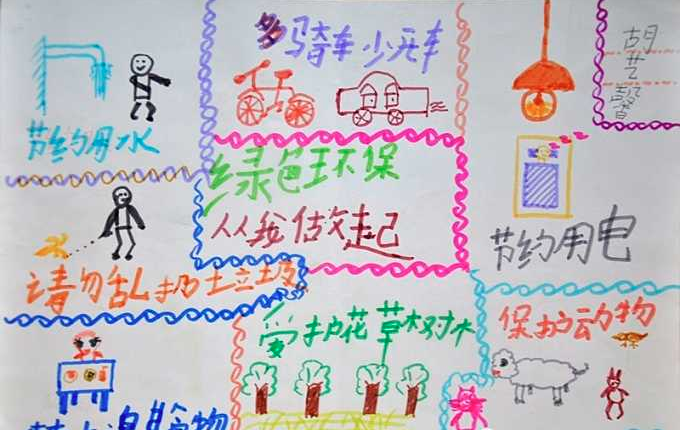 节约用水
多骑车少开车
胡艺馨
绿色环保
从我做起
节约用电
请勿乱扔垃圾
爱护花草树木
保护动物